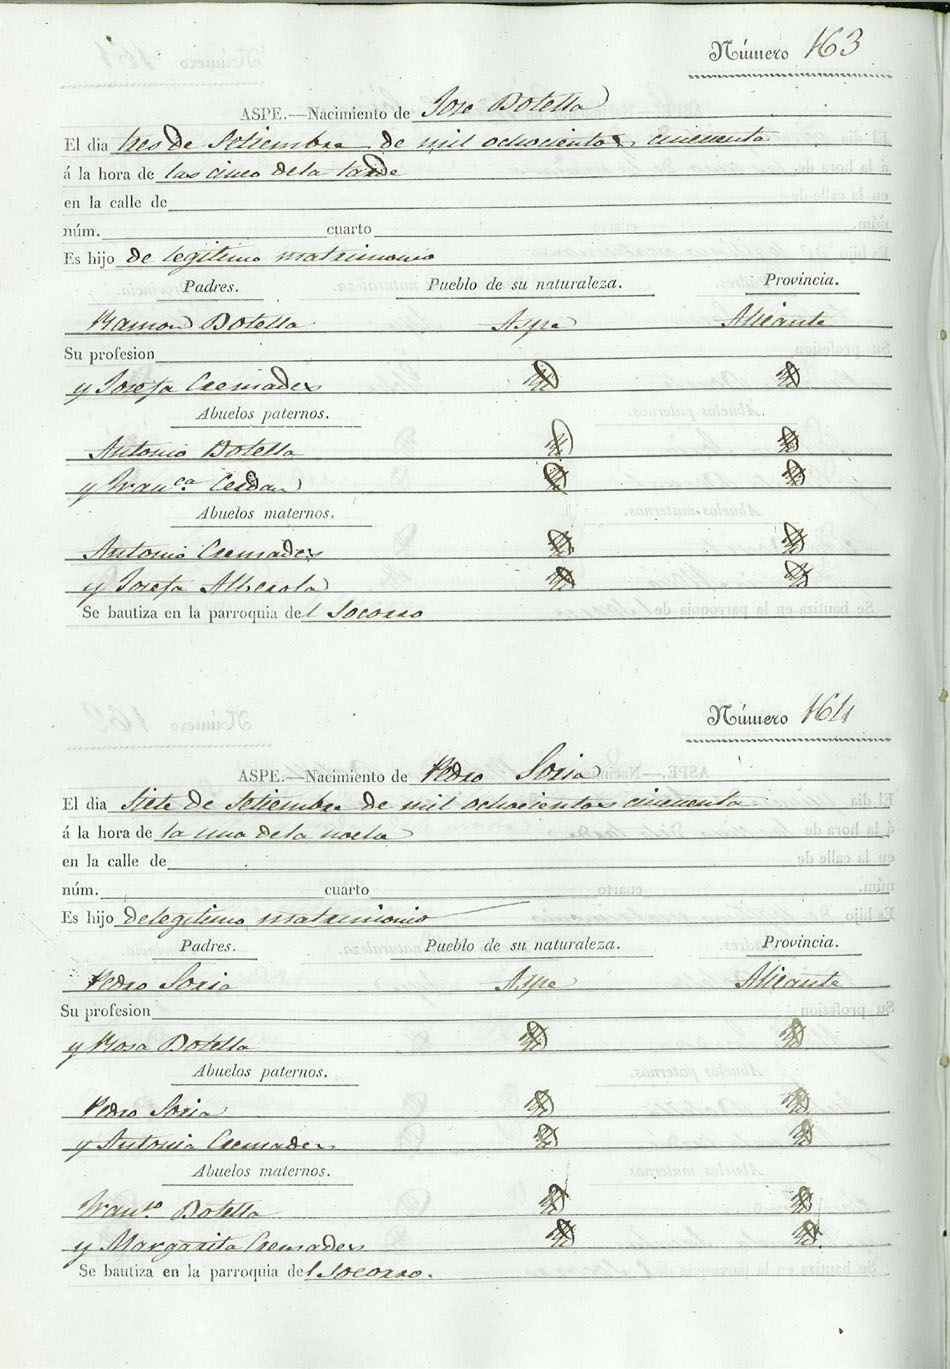 Número 163
ASPE.—Nacimiento de Jose Botella
El dia tres de Setiembre de mil ochocientos cincuenta
á la hora de las cinco de la tarde
en la calle de
núm. cuarto
Es hijo de legitimo matrimonio
Padres. Pueblo de su naturaleza. Provincia.
Ramon Botella Aspe Alicante
Su profesion
y Josefa Cremades
Abuelos paternos.
Antonio Botella
y Fran.ca Cerdan
Abuelos maternos.
Antonio Cremades
y Josefa Alberola
Se bautiza en la parroquia del Socorro
Número 164
ASPE.—Nacimiento de Pedro Soria
El dia Siete de Setiembre de mil ochocientos cincuenta
á la hora de la una de la noche
en la calle de
núm. cuarto
Es hijo de legitimo matrimonio
Padres. Pueblo de su naturaleza. Provincia.
Pedro Soria Aspe Alicante
Su profesion
y Rosa Botella
Abuelos paternos.
Pedro Soria
y Antonia Cremades
Abuelos maternos.
Fran.co Botella
y Margarita Cremades
Se bautiza en la parroquia del Socorro.